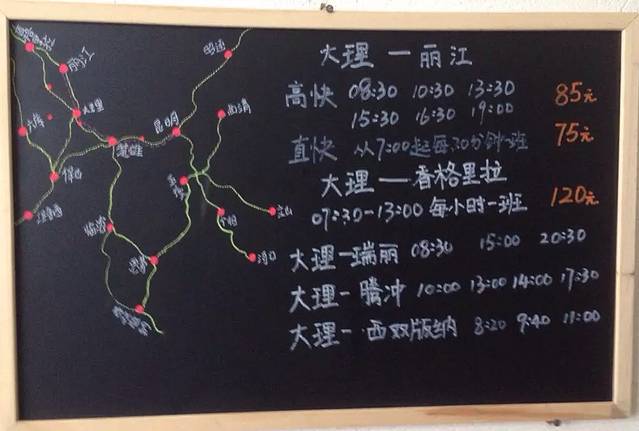 大理 — 丽江
高快 08:30 10:30 13:30 85元
15:30 16:30 19:00
直快 从7:00起每30分钟一班 75元
大理 — 香格里拉
07:30-13:00 每小时一班 120元
大理 — 瑞丽 08:30 15:00 20:30
大理 — 腾冲 10:00 13:00 14:00 17:30
大理 — 西双版纳 8:20 9:40 11:00
昭通
丽江
大理
昆明
六库
楚雄
保山
临沧
文山
个旧
河口